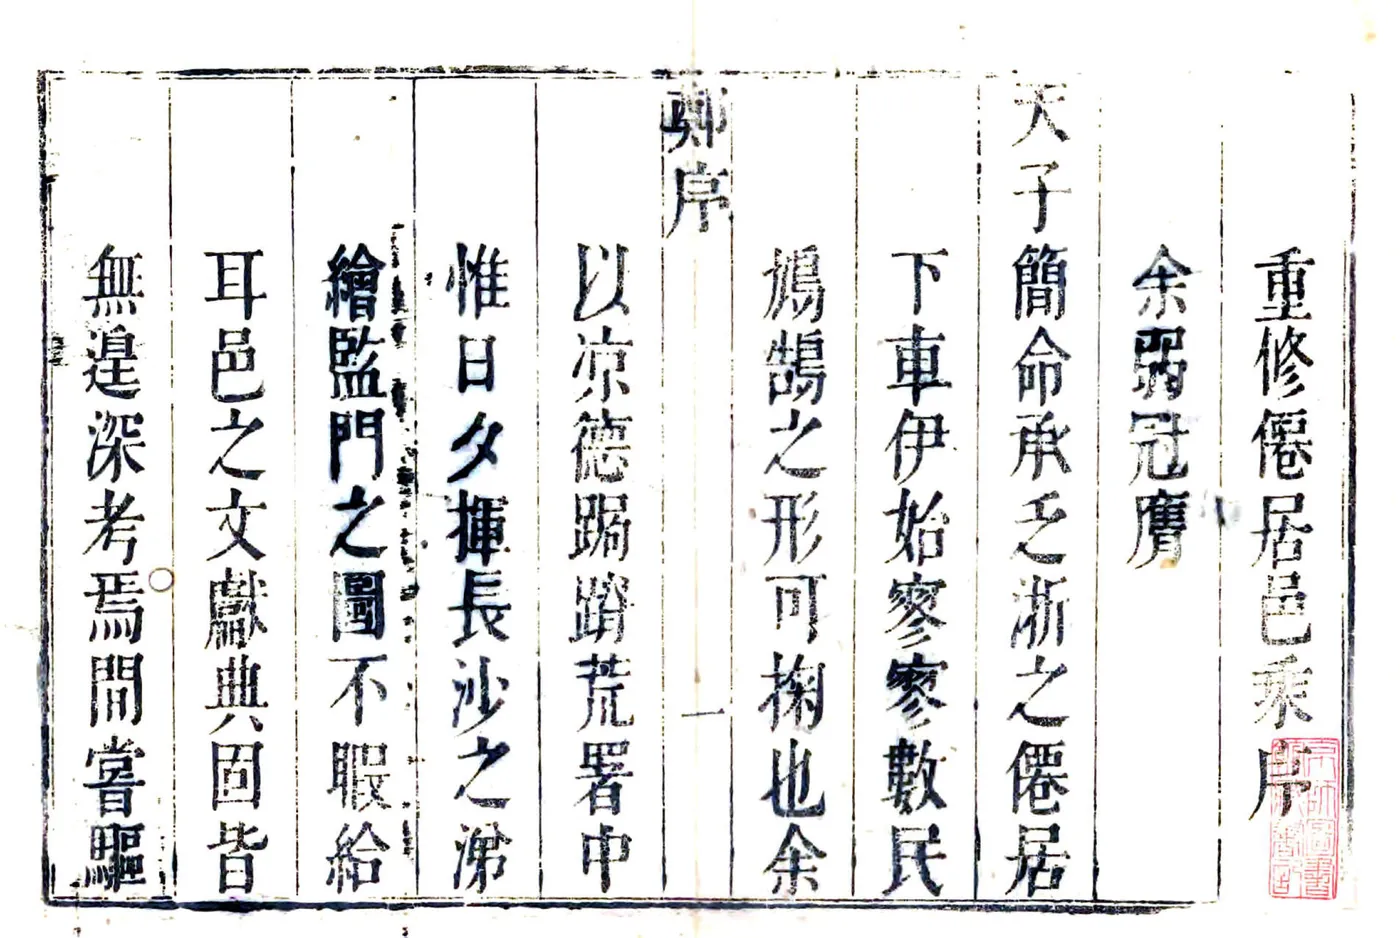 重修僊居邑乘序
余弱冠膺
天子簡命承乏浙之僊居
下車伊始寥寥數民
鳩鵠之形可掬也余
鄭序
一
以凉德跼蹐荒署中
惟日夕揮長沙之涕
繪監門之圖不暇給
耳邑之文獻典固皆
無遑深考焉間嘗驅